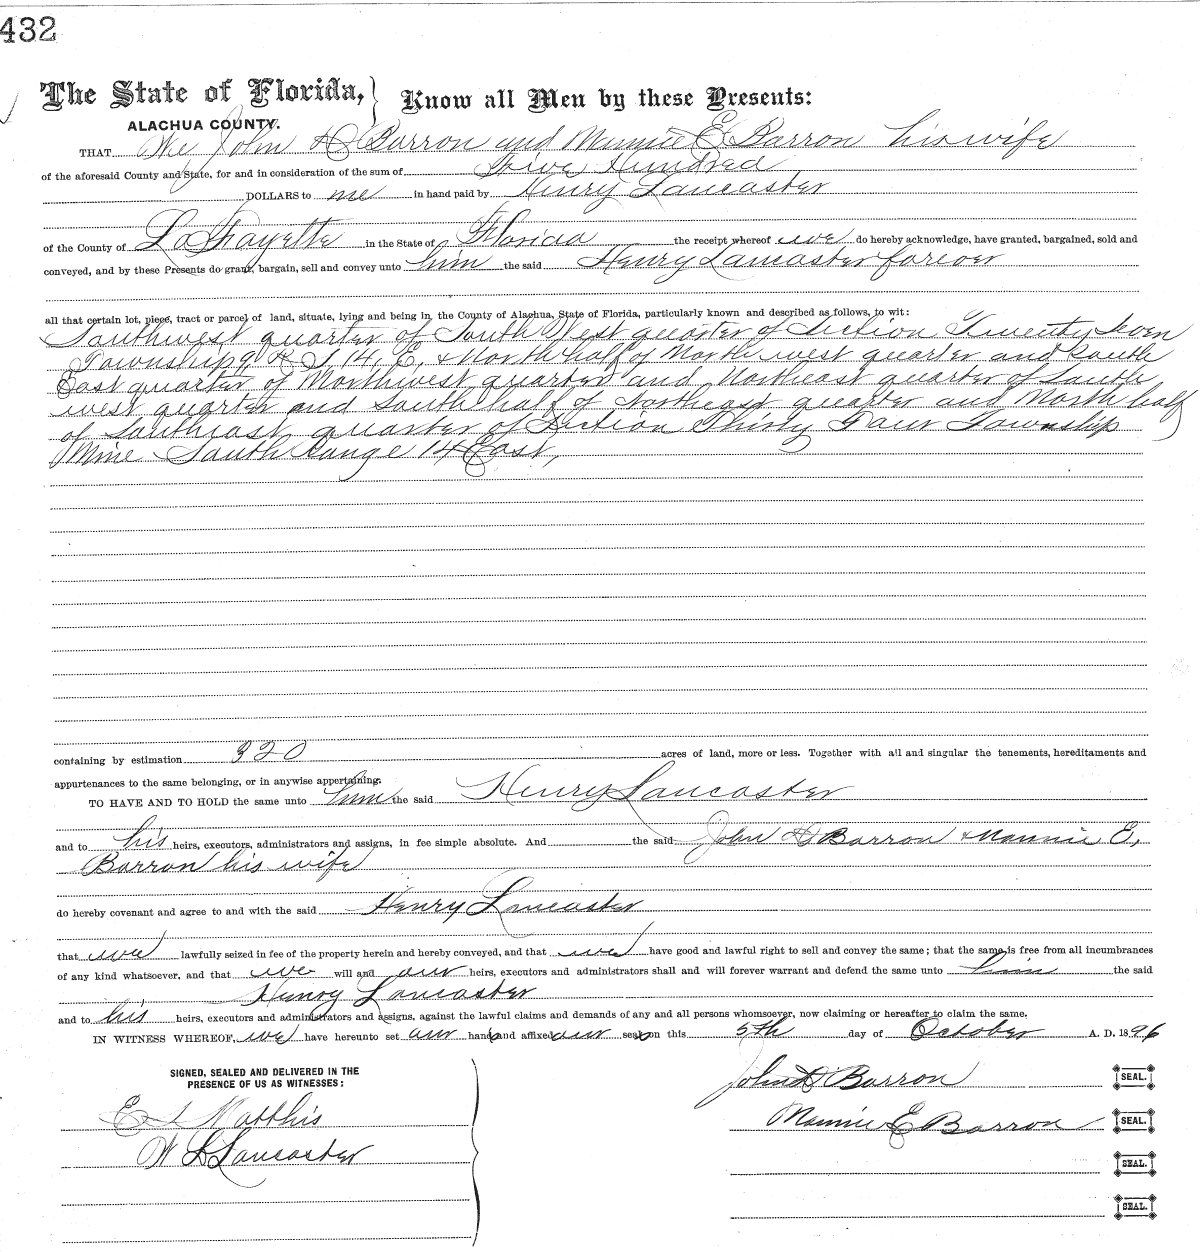 432
The State of Florida, } Know all Men by these Presents:
ALACHUA COUNTY.
THAT We John D Barron and Mannie E Barron his wife
of the aforesaid County and State, for and in consideration of the sum of Five Hundred
DOLLARS to me in hand paid by Henry Lancaster
of the County of LaFayette in the State of Florida the receipt whereof we do hereby acknowledge, have granted, bargained, sold and
conveyed, and by these Presents do grant, bargain, sell and convey unto him the said Henry Lancaster forever
all that certain lot, piece, tract or parcel of land, situate, lying and being in the County of Alachua, State of Florida, particularly known and described as follows, to wit:
Southwest quarter of South West quarter of Section Twenty Seven
Township 9 R S 14, E, & North half of North west quarter and South
East quarter of Northwest quarter and Northeast quarter of South
west quarter and South half of Northeast quarter and North half
of Southeast quarter of Section Thirty Four Township
Nine South Range 14 East,
containing by estimation 320 acres of land, more or less. Together with all and singular the tenements, hereditaments and
appurtenances to the same belonging, or in anywise appertaining.
TO HAVE AND TO HOLD the same unto him the said Henry Lancaster
and to his heirs, executors, administrators and assigns, in fee simple absolute. And the said John D Barron & Mannie E,
Barron his wife
do hereby covenant and agree to and with the said Henry Lancaster
that we lawfully seized in fee of the property herein and hereby conveyed, and that we have good and lawful right to sell and convey the same; that the same is free from all incumbrances
of any kind whatsoever, and that we will and our heirs, executors and administrators shall and will forever warrant and defend the same unto him the said
Henry Lancaster
and to his heirs, executors and administrators and assigns, against the lawful claims and demands of any and all persons whomsoever, now claiming or hereafter to claim the same.
IN WITNESS WHEREOF, we have hereunto set our hands and affixed our seals on this 5th day of October A. D. 1896
SIGNED, SEALED AND DELIVERED IN THE
PRESENCE OF US AS WITNESSES:
E L Matthis
W L Lancaster
John D Barron SEAL.
Mannie E Barron SEAL.
SEAL.
SEAL.